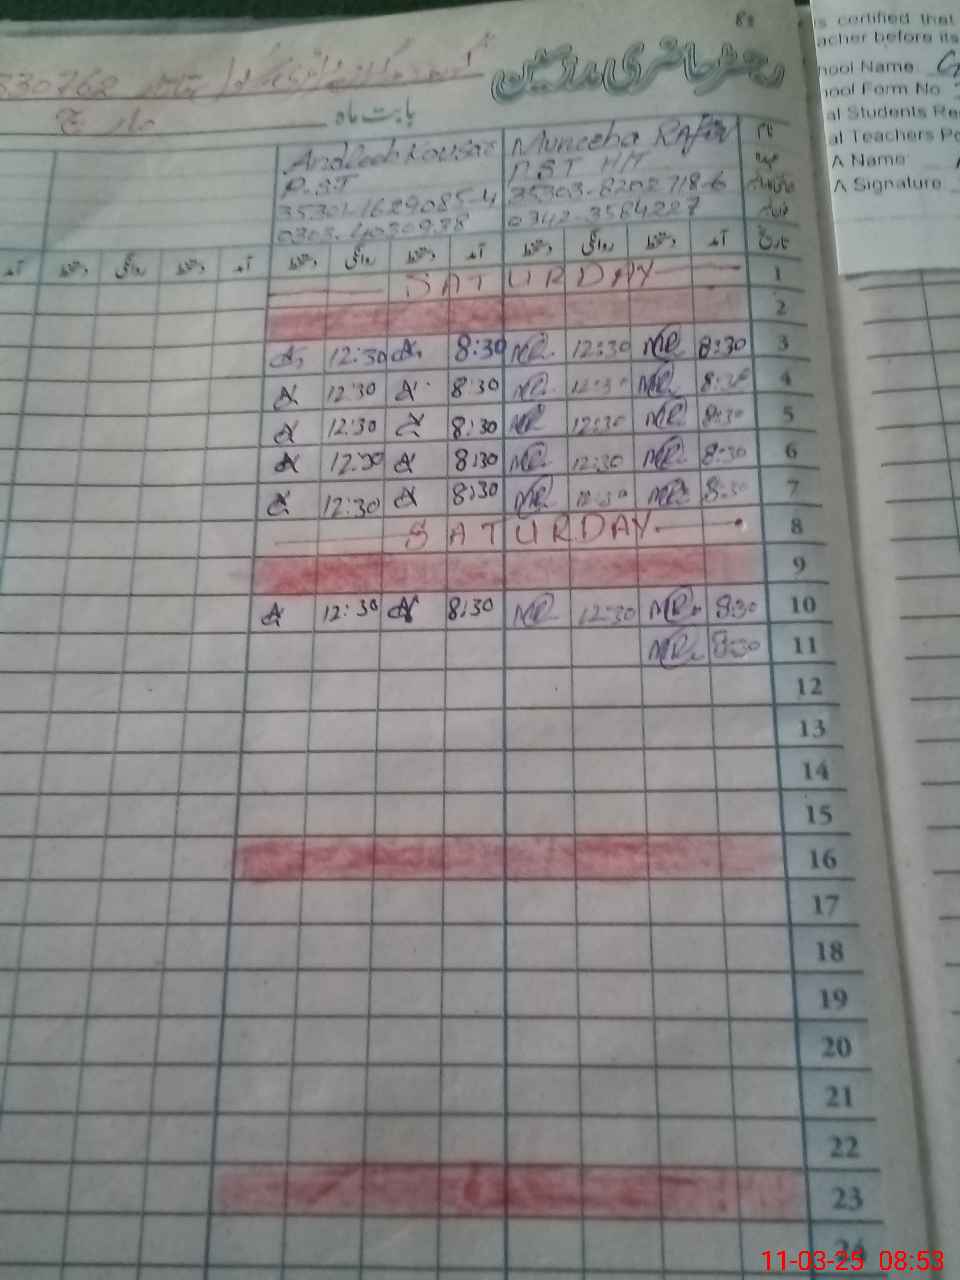 s certified that
acher before its
hool Name
hool Form No
al Students Re
al Teachers Po
A Name
A Signature
رجسٹر حاضری مدرسین
330762
بابت ماہ مارچ
Muneeba
نام
P.S.T
P.S.T HM
عہدہ
35301-1629085-4 35303-8202718-6
0342-3584227
آمد دستخط روانگی دستخط آمد دستخط روانگی دستخط آمد تاریخ
SATURDAY 1
2
12:30 8:30 MR 12:30 MR 8:30 3
12:30 8:30 MR 12:30 MR 8:30 4
12:30 8:30 MR 12:30 MR 8:30 5
12:30 8:30 MR 12:30 MR 8:30 6
12:30 8:30 MR 12:30 MR 8:30 7
SATURDAY 8
9
12:30 8:30 MR 12:30 MR 8:30 10
MR 8:30 11
12
13
14
15
16
17
18
19
20
21
22
23
24
11-03-25 08:53